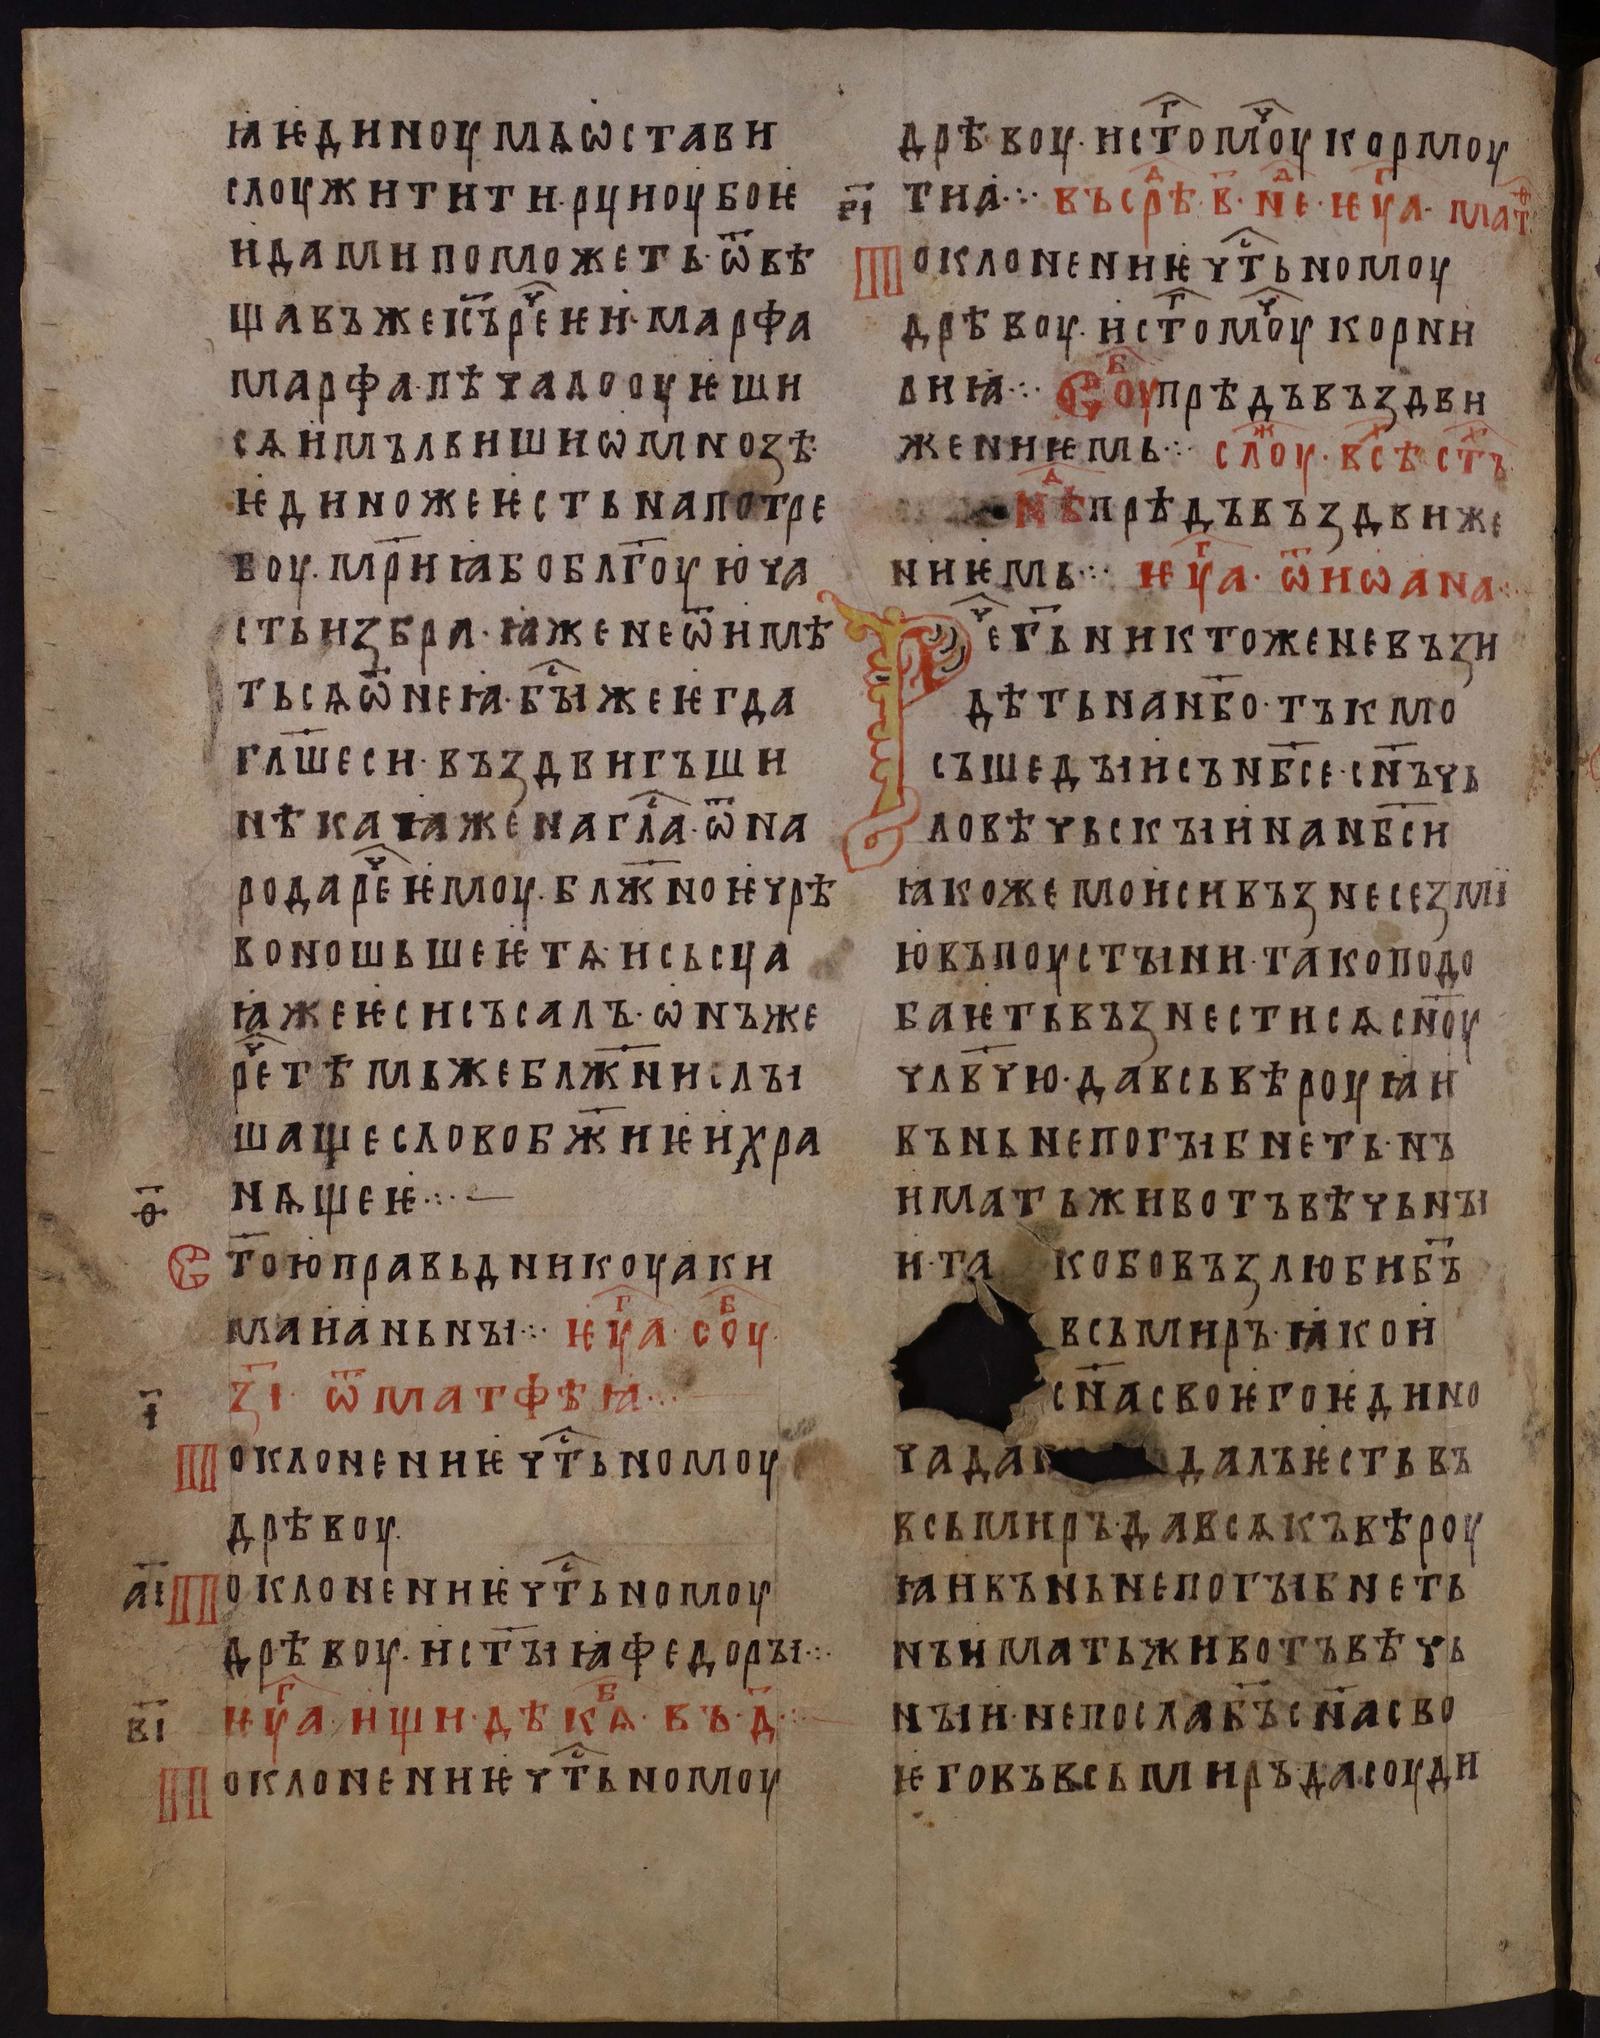 ꙗѥдиноу мѧ ѡстави
слоужити ти · рци ноу бо ѥ
и да ми поможеть · ѿвѣ
щавъ же к҃ъ рⷱ҇е ѥи · марфа
марфа · пѣчалоуѥши
сѧ и мълвиши ѡ мнозѣ ·
ѥдино же ѥсть на потре
боу · мр҃иꙗ бо блг҃оую ча
сть избра · ꙗже не ѿимѣ
тьсѧ ѿ неꙗ · бⷭ҇ы же ѥгда
гл҃ше си · въздвигъши
нѣкаꙗ жена глⷭ҇а · ѿ на
рода рⷱ҇е ѥмоу · бл҃жно ѥ чрѣ
во ношьшеѥ тѧ · и сьсца
ꙗже ѥси съсалъ · ѡнъ же
рⷱ҇е тѣмьже бл҃жни слы
шаще слово бж҃иѥ и хра
нѧщеѥ ⁘
ѳ҃
Ст҃ою правьдникоу аки
ма и аньны ⁘ ѥⷢ҇уа · сⷠ҇оу ·
з҃і · ѿ матфѣꙗ ⁘
і҃
Поклонениѥ чⷭ҇тьномоу
дрѣвоу ·
а҃і Поклонениѥ чⷭ҇тьномоу
дрѣвоу · и ст҃ыꙗ федоры ⁘
ѥⷢ҇уа · ищи · дѣкⷠ҇ѧ · въ · д҃ ⁘
в҃і
Поклонениѥ чⷭ҇тьномоу
дрѣвоу · и стⷢ҇омⷱ҇оу кормоу
г҃і тиа ⁘ въ срⷣ҇ѣ · в҃ · нⷣ҇е · ѥⷢ҇уа · матⷴ҇
Поклонениѥ чⷭ҇тьномоу
дрѣвоу · и стⷢ҇омⷱ҇оу корни
лиꙗ ⁘ Сⷠ҇оу прѣдъ въздви
жениѥмь ⁘ слⷤ҇оу · всⷯ҇ѣ стⷯ҇ъ
нⷣ҇ѣ прѣдъ въздвиже
ниѥмь ⁘ ѥⷢ҇уа · ѿ иѡана ⁘
Рⷱ҇е г҃ь никтоже не възи
дѣть на нб҃о · тъкмо
съшедыи съ нб҃се · сн҃ъ чь
ловѣчьскыи и на нб҃си
ꙗкоже моиси възнесе змі
ю въ поустыни · тако подо
баѥть възнестисѧ сн҃оу
члв҃чю · да вьсь вѣроуꙗи
въ нь не погыбнеть · нъ
имать животъ вѣчьны
и · тако бо възлюби б҃ъ
всь миръ · ꙗко и
сн҃а своѥго ѥдино
чада далъ ѥсть въ
всь миръ · да всѧкъ вѣроу
ꙗи въ нь не погыбнеть
нъ имать животъ вѣчь
ныи · не посла б҃ъ сн҃а сво
ѥго въ всь миръ да соуди